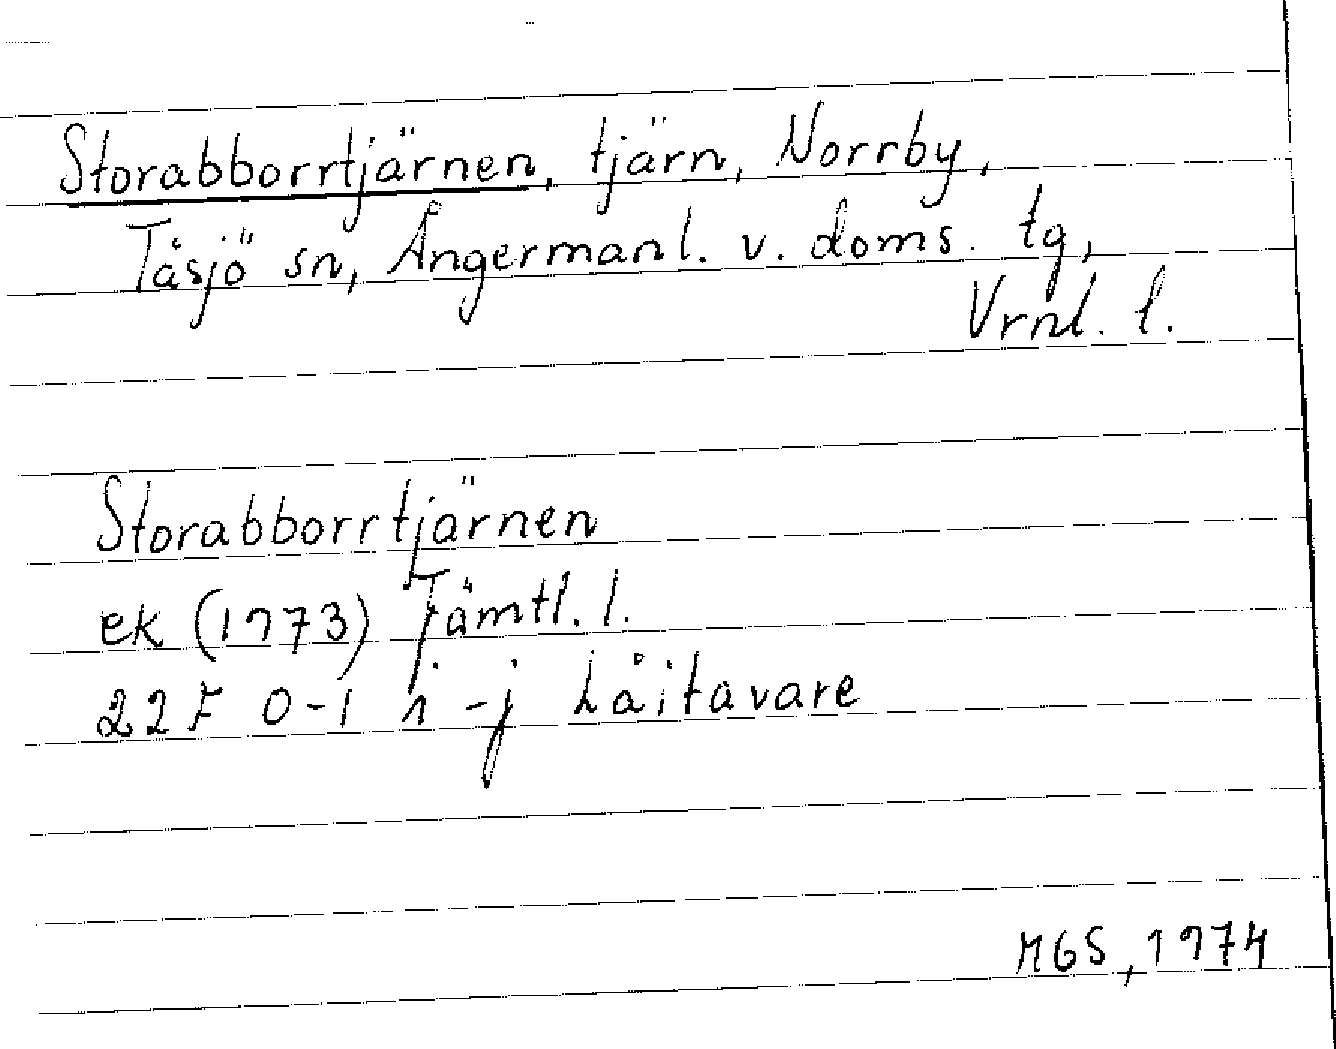 Storabborrtjärnen, tjärn, Norrby,
Tåsjö sn, Ångermanl. v. doms. tg,
Vrnl. l.
Storabborrtjärnen
ek (1973) Jämtl. l.
22F 0-1 i-j Låitavare
MGS, 1974